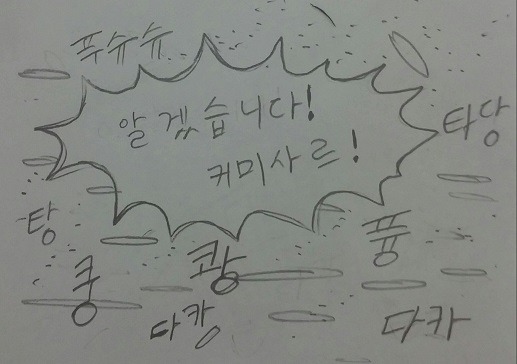 푸슈슈
알겠습니다!
커미사르!
타당
탕
퓽
쾅
쿵
다캉
다카